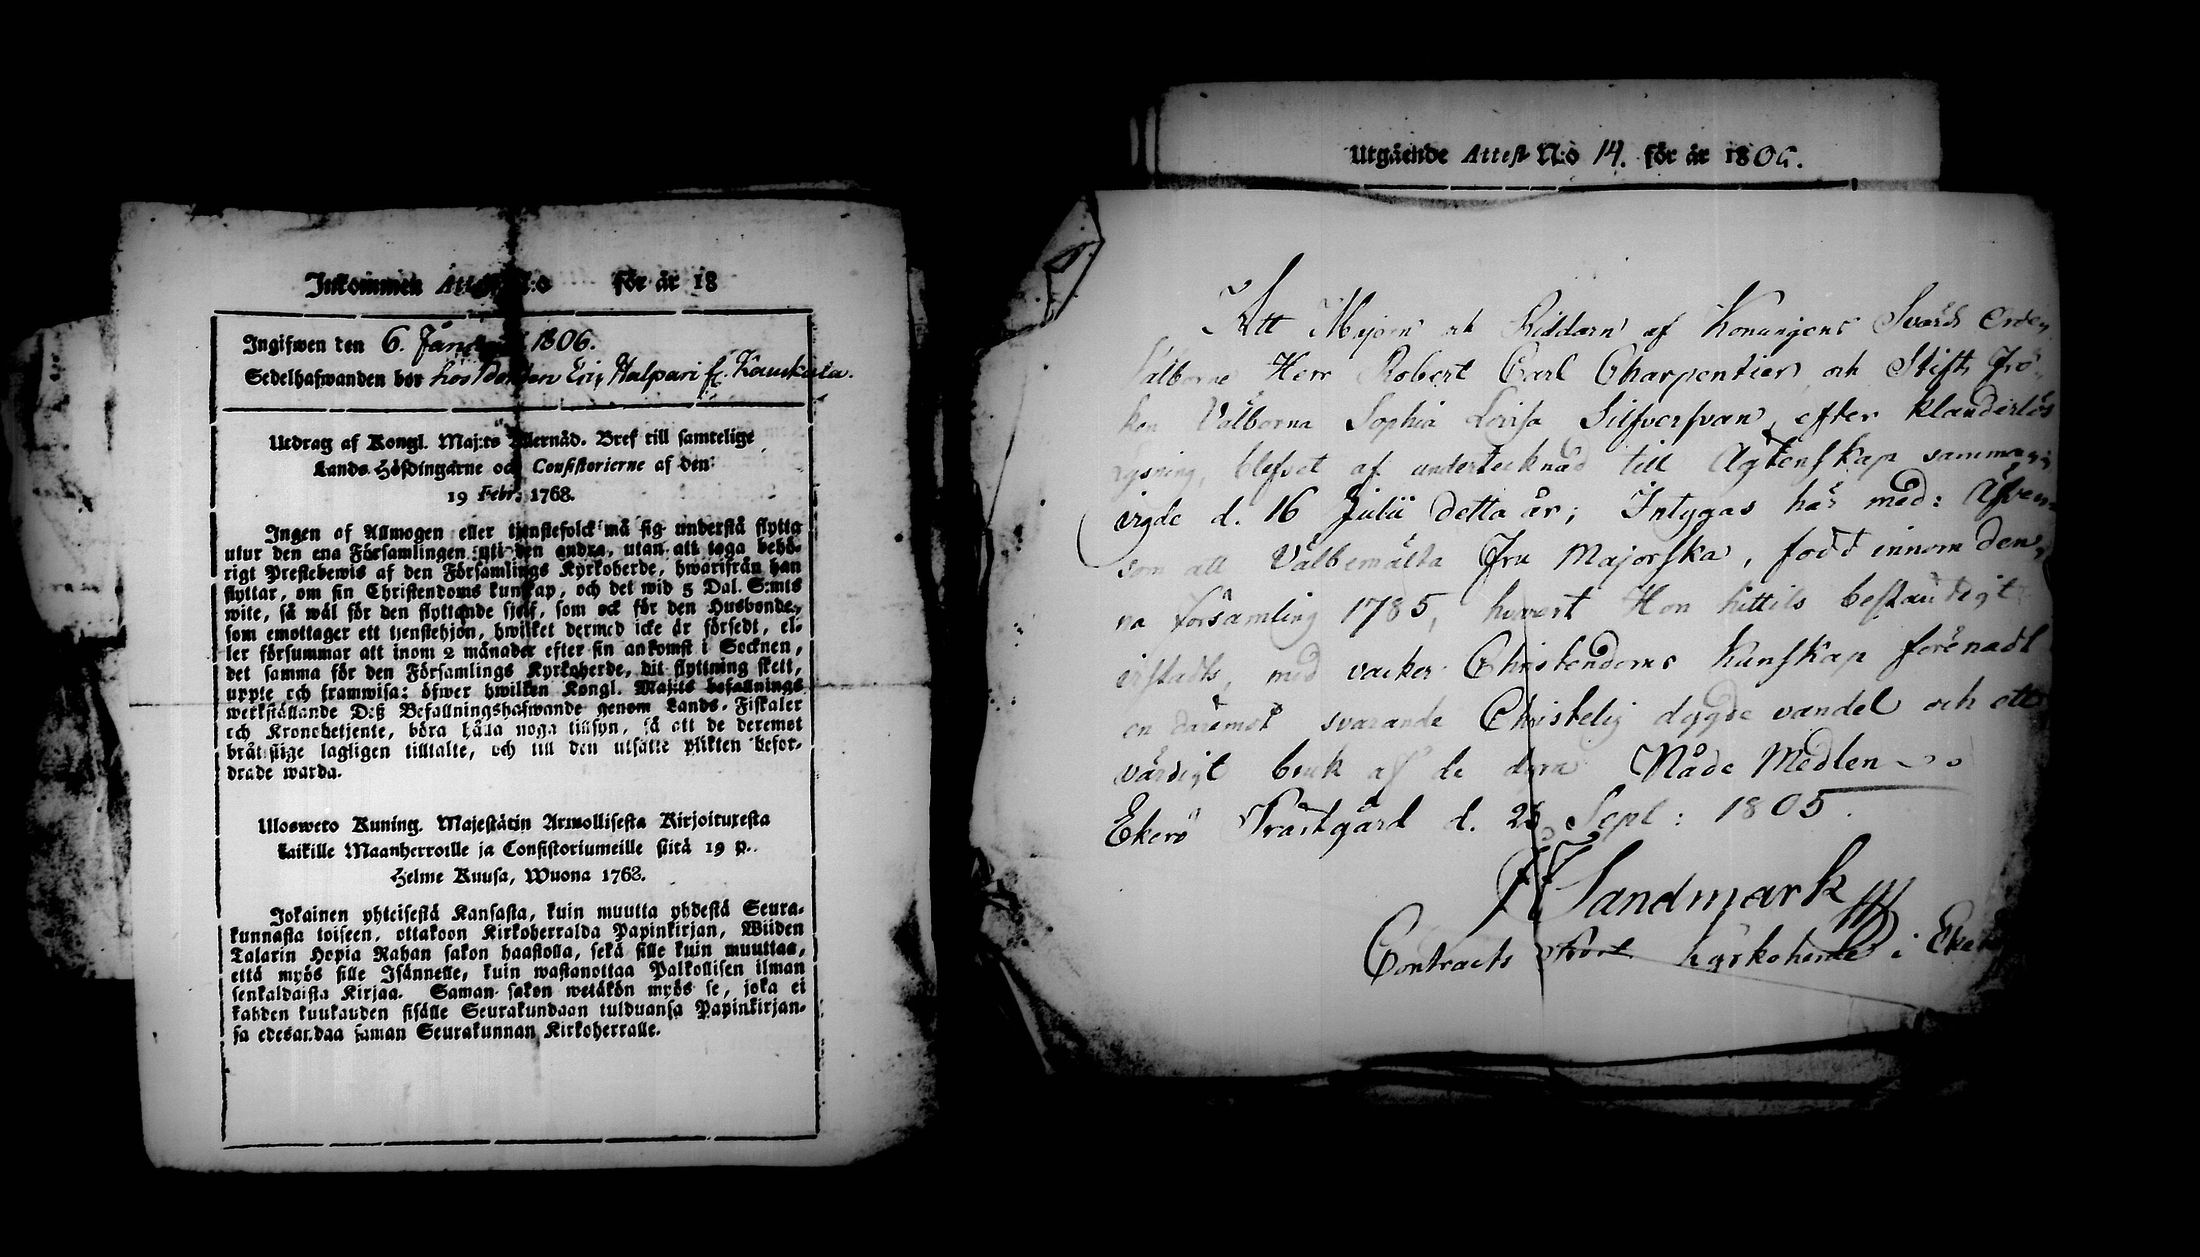 Inkommen Attest N:o för år 18
Ingifwen den 6. Januarii 1806.
Sedelhafwanden bor hos Bonden Eric Halpari fr. Kauskala.
Utdrag af Kongl. Maj:ts Allernåd. Bref till samtelige
Lands-Höfdingarne och Consistorierne af den
19 Febr. 1768.
Ingen af Allmogen eller tjenstefolck må sig understå flytta
utur den ena Församlingen uti den andra, utan att taga behö-
rigt Prestebewis af den Församlings Kyrkoherde, hwarifrån han
flyttar, om sin Christendoms kunskap, och det wid 5 Dal. S:mts
wite, så wäl för den flyttande sjelf, som ock för den Husbonde,
som emottager ett tjenstehjon, hwilket dermed icke är försedt, el-
ler försummar att inom 2 månader efter sin ankomst i Socknen,
det samma för den Församlings Kyrkoherde, dit flyttning skett,
uppte och framwisa: öfwer hwilken Kongl. Maj:ts befallnings
werkställande Deß Befallningshafwande genom Lands-Fiskaler
och Kronobetjente, böra hålla noga tillsyn, så att de deremot
bråttslige lagligen tilltalte, och till den utsatte plikten befor-
drade warda.
Ulosweto Kuning. Majestätin Armollisesta Kirjoituxesta
kaikille Maanherroille ja Consistoriumeille siitä 19 p.
Helme Kuusa, Wuona 1768.
Jokainen yhteisestä Kansasta, kuin muutta yhdestä Seura-
kunnasta toiseen, ottakoon Kirkoherralda Papinkirjan, Wiiden
Talarin Hopia Rahan sakon haastolla, sekä sille kuin muuttaa,
että myös sille Isännelle, kuin wastanottaa Palkollisen ilman
senkaldaista Kirjaa. Saman sakon wetäkön myös se, joka ei
kahden kuukauden sisälle Seurakundaan tulduansa Papinkirjan-
sa edesandaa saman Seurakunnan Kirkoherralle.
Utgående Attest N:o 14. för år 1806.
Att Majorn och Riddarn af Konungens Svärds Orden
Välborne Herr Robert Carl Charpentier och Stifts Frö-
ken Välborna Sophia Lovisa Silfversvan, efter klanderlös
Lysning, blefvet af undertecknad till Ägtenskap samman-
vigde d. 16 Julii detta år; Intygas här med: Äfven
som att Välbemälta Fru Majorska, född innom den-
na församling 1785, hvarest Hon hittils beständigt
vistadts, med vacker Christendoms Kunskap förenadt
en däremot svarande Christelig dygde vandel och ett
värdigt bruk af de dyra Nåde Medlen
Ekerö Prästgård d. 23 Sept: 1805.
Sandmark
Contracts Prost Kyrkoherde i Ekerö